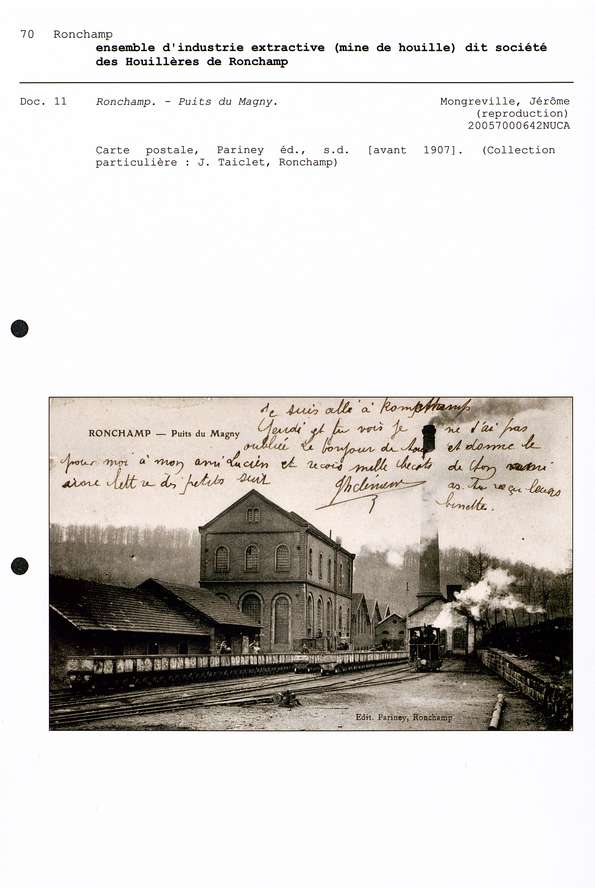 70 Ronchamp
ensemble d'industrie extractive (mine de houille) dit société
des Houillères de Ronchamp
Doc. 11 Ronchamp. - Puits du Magny.
Mongreville, Jérôme
(reproduction)
20057000642NUCA
Carte postale, Pariney éd., s.d. [avant 1907]. (Collection
particulière : J. Taiclet, Ronchamp)
je suis allé à
Jeudi et tu vois je ne t'ai pas
RONCHAMP — Puits du Magny
oublié le bonjour de et donne le
pour moi à mon ami Lucien et recois mille de ton
lettre des petits
binette.
Edit. Pariney, Ronchamp